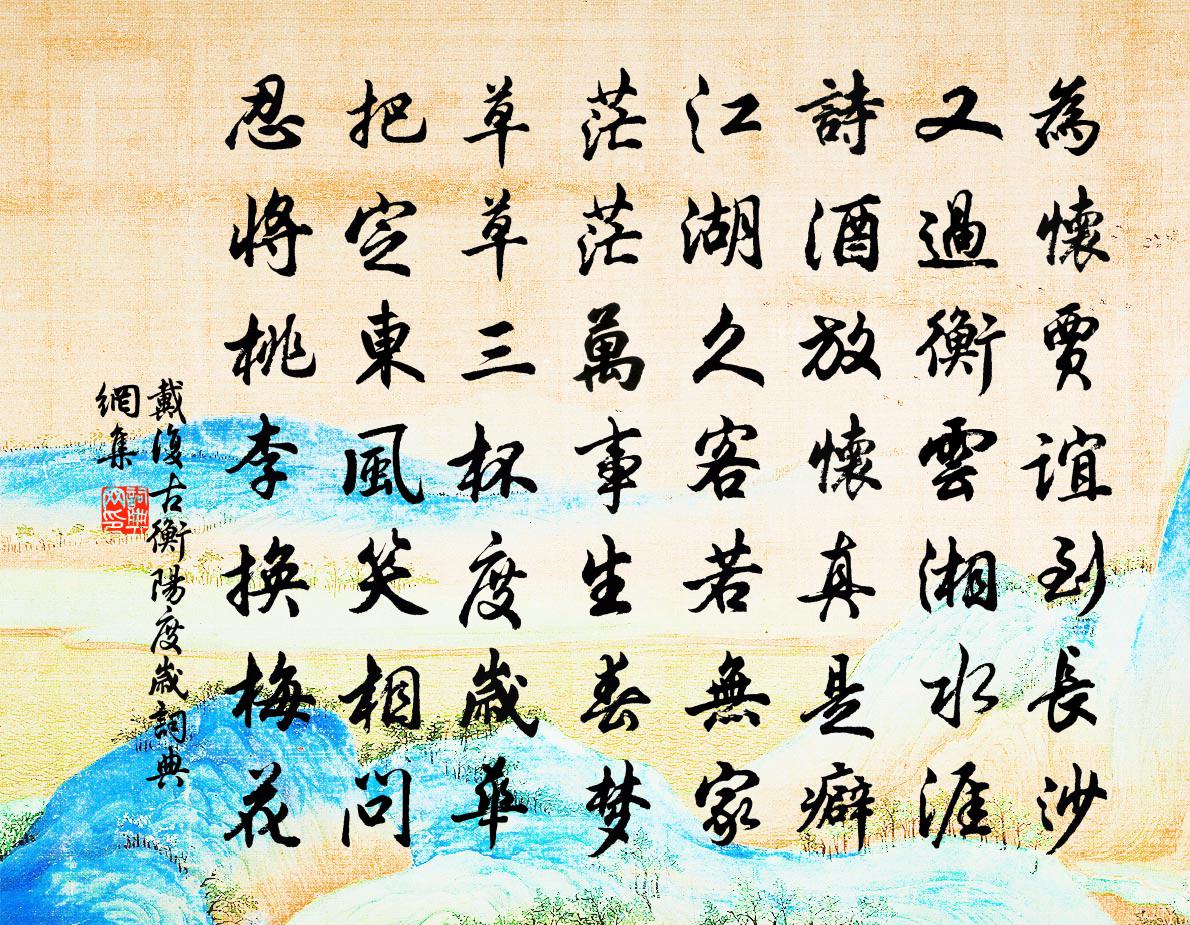 為懷賈誼到長沙
又過衡雲湘水涯
詩酒放懷真是癖
江湖久客若無家
茫茫萬事生春夢
草草三杯度歲華
把定東風笑相問
忍將桃李換梅花
戴復古衡陽度歲詞典
網集
詞典
网印